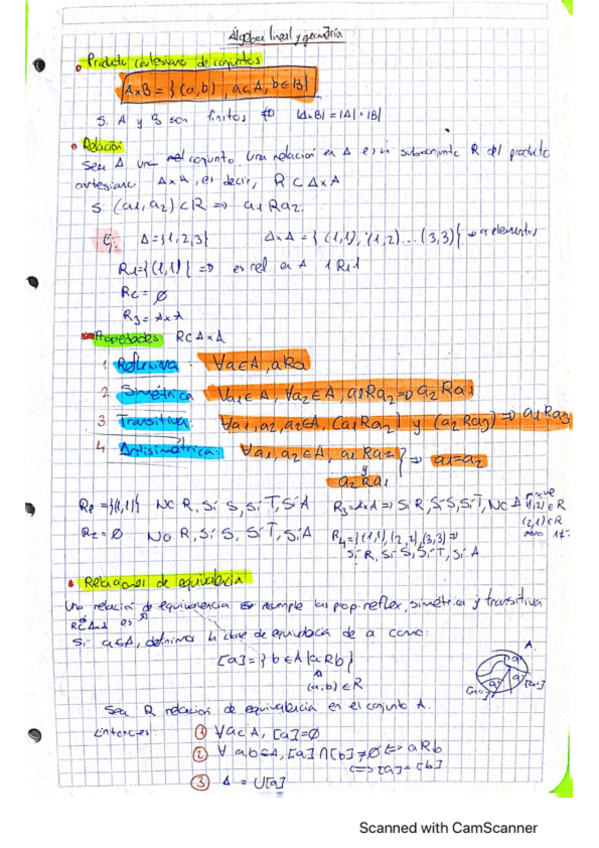 Álgebra lineal y geometría
Producto cartesiano de conjuntos
A×B = {(a,b), a∈A, b∈B}
Si A y B son finitos ⇒ |A×B| = |A|·|B|
Relación
Sea A un conjunto. Una relación en A es un subconjunto R del producto
cartesiano A×A, es decir, R⊂A×A
Si (a1,a2)∈R ⇒ a1Ra2.
Ej: A={1,2,3} A×A = {(1,1), (1,2)...(3,3)} → 9 elementos
R1={(1,1)} ⇒ es rel en A 1R1 1
R2= ∅
R3= A×A
Propiedades R⊂A×A
1. Reflexiva: ∀a∈A, aRa
2. Simétrica ∀a1∈A, ∀a2∈A, a1Ra2 ⇒ a2Ra1
3. Transitiva: ∀a1,a2,a3∈A, (a1Ra2) y (a2Ra3) ⇒ a1Ra3
4. Antisimétrica: ∀a1,a2∈A, a1Ra2 } ⇒ a1=a2
y
a2Ra1
R1={(1,1)} NO R, Sí S, Sí T, Sí A R3=A×A ⇒ Sí R, Sí S, Sí T, No A porque (1,2)∈R
(2,1)∈R
R2=∅ No R, Sí S, Sí T, Sí A R4={(1,1),(2,2),(3,3)} ⇒ pero 1≠
Sí R, Sí S, Sí T, Sí A
Relaciones de equivalencia
Una relación de equivalencia cumple las prop. reflex, simétrica y transitiva
R⊂A×A es
Si a∈A, definimos la clase de equivalencia de a como:
[a]={b∈A|aRb}
(a,b)∈R
A.
Sea R relación de equivalencia en el conjunto A.
Entonces: ① ∀a∈A, [a]=∅
② ∀ a,b∈A, [a]∩[b]≠∅ ⇔ aRb
⇔ [a]=[b]
③ A = ∪[a]
Scanned with CamScanner